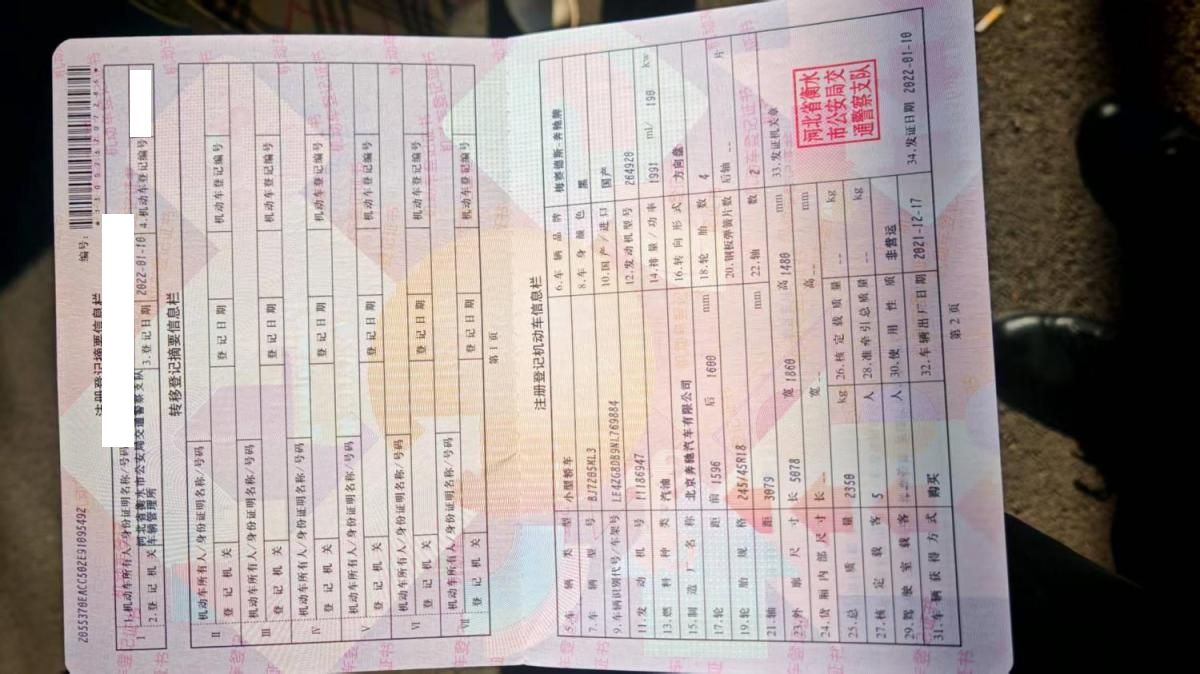 2055370EACC502E91095492
编号:
注册登记摘要信息栏
1 1.机动车所有人/身份证明名称/号码
2.登记机关 河北省衡水市公安局交通警察支队车辆管理所 3.登记日期 2022-01-10 4.机动车登记编号
转移登记摘要信息栏
Ⅱ 机动车所有人/身份证明名称/号码
登记机关 登记日期 机动车登记编号
Ⅲ 机动车所有人/身份证明名称/号码
登记机关 登记日期 机动车登记编号
Ⅳ 机动车所有人/身份证明名称/号码
登记机关 登记日期 机动车登记编号
Ⅴ 机动车所有人/身份证明名称/号码
登记机关 登记日期 机动车登记编号
Ⅵ 机动车所有人/身份证明名称/号码
登记机关 登记日期 机动车登记编号
Ⅶ 机动车所有人/身份证明名称/号码
登记机关 登记日期 机动车登记编号
第1页
注册登记机动车信息栏
5.车辆类型 小型轿车 6.车辆品牌 梅赛德斯-奔驰牌
7.车辆型号 BJ7205KL3 8.车身颜色 黑
9.车辆识别代号/车架号 LE4ZG8DB9NL769884 10.国产/进口 国产
11.发动机号 11186947 12.发动机型号 264920
13.燃料种类 汽油 14.排量/功率 1991 ml/ 190 kw
15.制造厂名称 北京奔驰汽车有限公司 16.转向形式 方向盘
17.轮距 前 1596 后 1600 mm 18.轮胎数 4
19.轮胎规格 245/45R18 20.钢板弹簧片数 后轴 -- 片
21.轴距 3079 mm 22.轴数 2
23.外廓尺寸 长 5078 宽 1860 高 1480 mm 33.发证机关章
24.货厢内部尺寸 长 -- 宽 -- 高 -- mm
25.总质量 2350 kg 26.核定载质量 -- kg
27.核定载客 5 人 28.准牵引总质量 -- kg
29.驾驶室载客 -- 人 30.使用性质 非营运
31.车辆获得方式 购买 32.车辆出厂日期 2021-12-17 34.发证日期 2022-01-10
河北省衡水
市公安局交
通警察支队
第2页